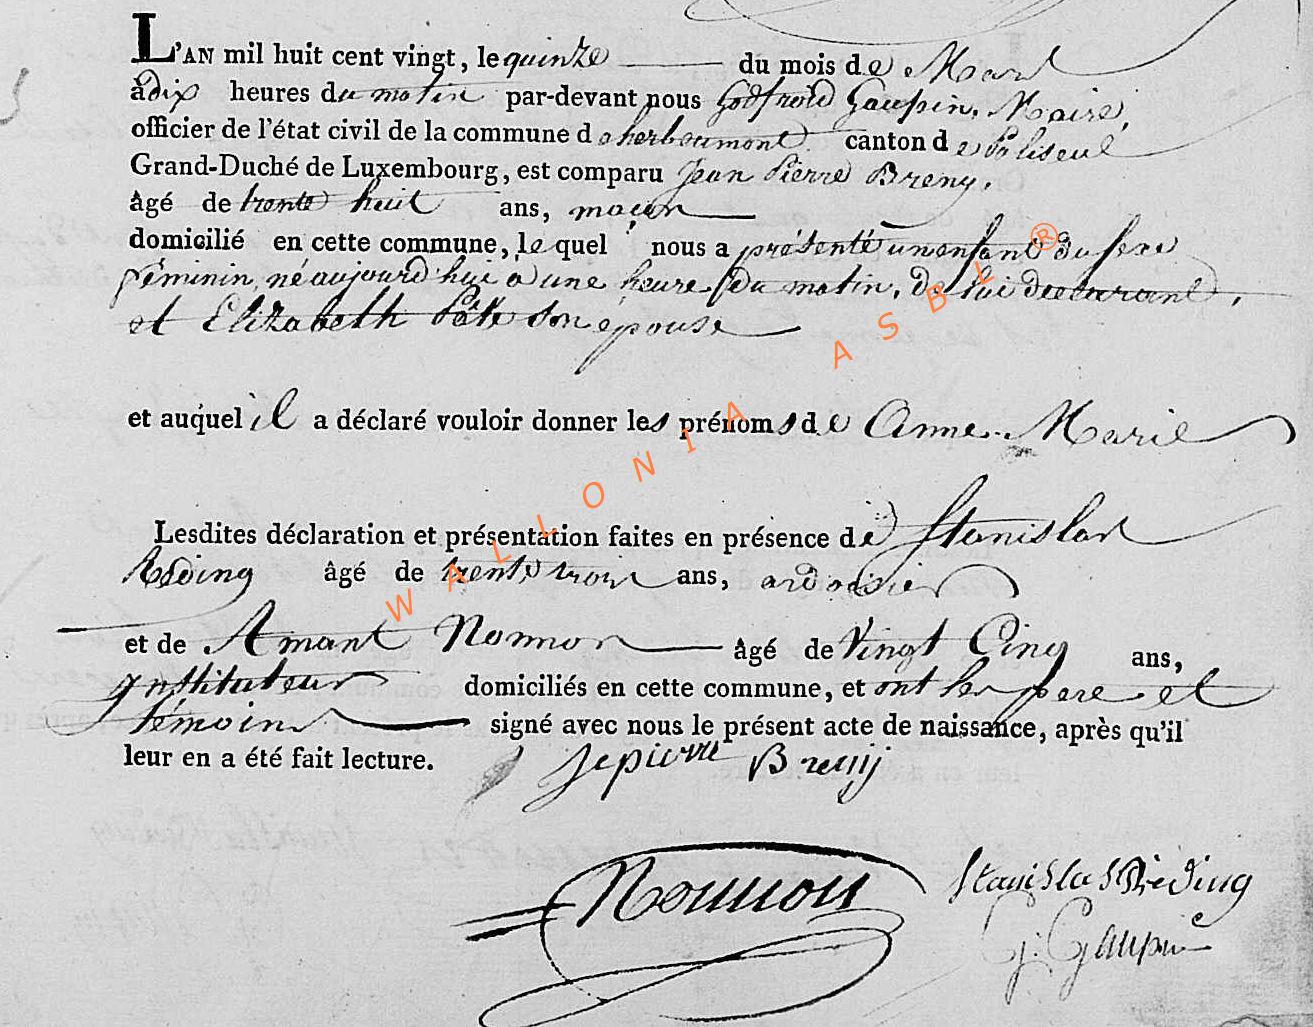 L'AN mil huit cent vingt, le quinze du mois de Mars
à dix heures du matin par-devant nous Godfroid Gaupin, Maire,
officier de l'état civil de la commune d herbeumont canton de Paliseul
Grand-Duché de Luxembourg, est comparu Jean Pierre Breny,
âgé de trente huit ans, maçon
domicilié en cette commune, le quel nous a présenté un enfant du sexe
féminin, né aujourd'hui a une heure du matin, de lui declarant,
et Elizabeth son epouse
et auquel il a déclaré vouloir donner les prénoms de Anne Marie
Lesdites déclaration et présentation faites en présence de Stanislas
Réding âgé de trente trois ans, ardoisier
et de Amant Nonnon âgé de Vingt Cinq ans,
instituteur domiciliés en cette commune, et ont les pere et
témoins signé avec nous le présent acte de naissance, après qu'il
leur en a été fait lecture.
Jepierre Breny
Nonnon
Stanislas Réding
G: Gaupin
WALLONIA ASBL ®